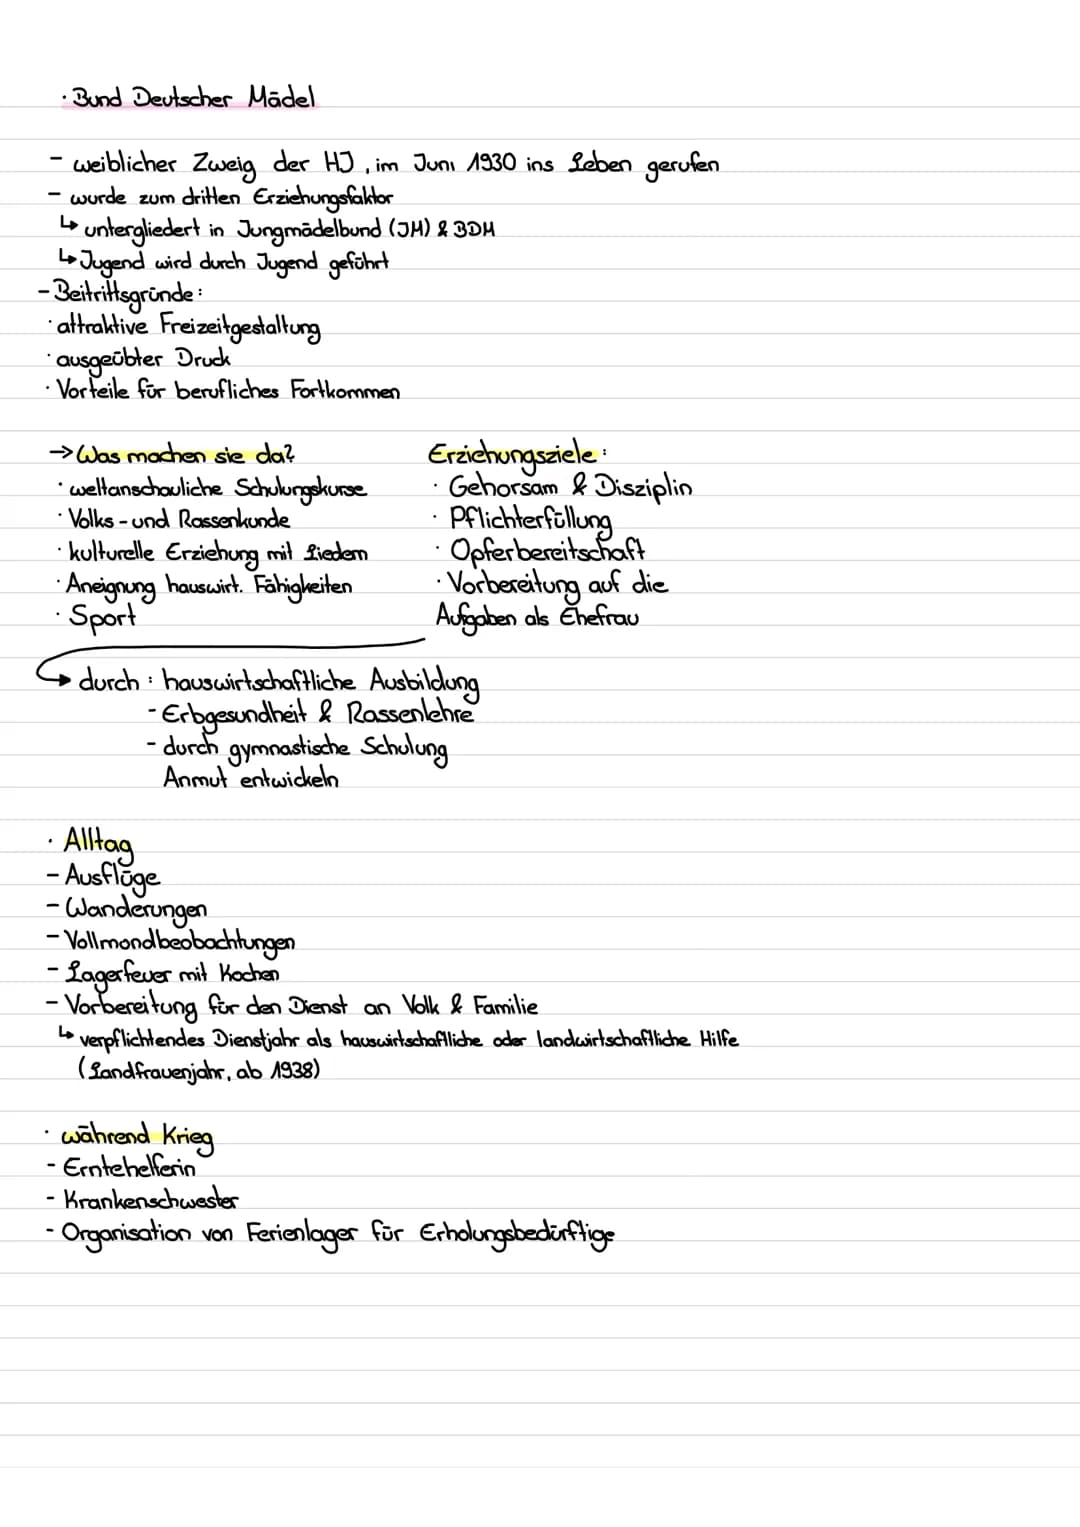 · Bund Deutscher Mädel
- weiblicher Zweig der HJ, im Juni 1930 ins Leben gerufen
- wurde zum dritten Erziehungsfaktor
↳ untergliedert in Jungmädelbund (JM) & BDM
↳ Jugend wird durch Jugend geführt
- Beitrittsgründe:
· attraktive Freizeitgestaltung
· ausgeübter Druck
· Vorteile für berufliches Fortkommen
→ Was machen sie da?
· weltanschauliche Schulungskurse
· Volks- und Rassenkunde
· kulturelle Erziehung mit Liedern
· Aneignung hauswirt. Fähigkeiten
· Sport
Erziehungsziele:
· Gehorsam & Disziplin
· Pflichterfüllung
· Opferbereitschaft
· Vorbereitung auf die
Aufgaben als Ehefrau
↳ durch: hauswirtschaftliche Ausbildung
- Erbgesundheit & Rassenlehre
- durch gymnastische Schulung
Anmut entwickeln
· Alltag
- Ausflüge
- Wanderungen
- Vollmondbeobachtungen
- Lagerfeuer mit Kochen
- Vorbereitung für den Dienst an Volk & Familie
↳ verpflichtendes Dienstjahr als hauswirtschaftliche oder landwirtschaftliche Hilfe
(Landfrauenjahr, ab 1938)
· während Krieg
- Erntehelferin
- Krankenschwester
- Organisation von Ferienlager für Erholungsbedürftige